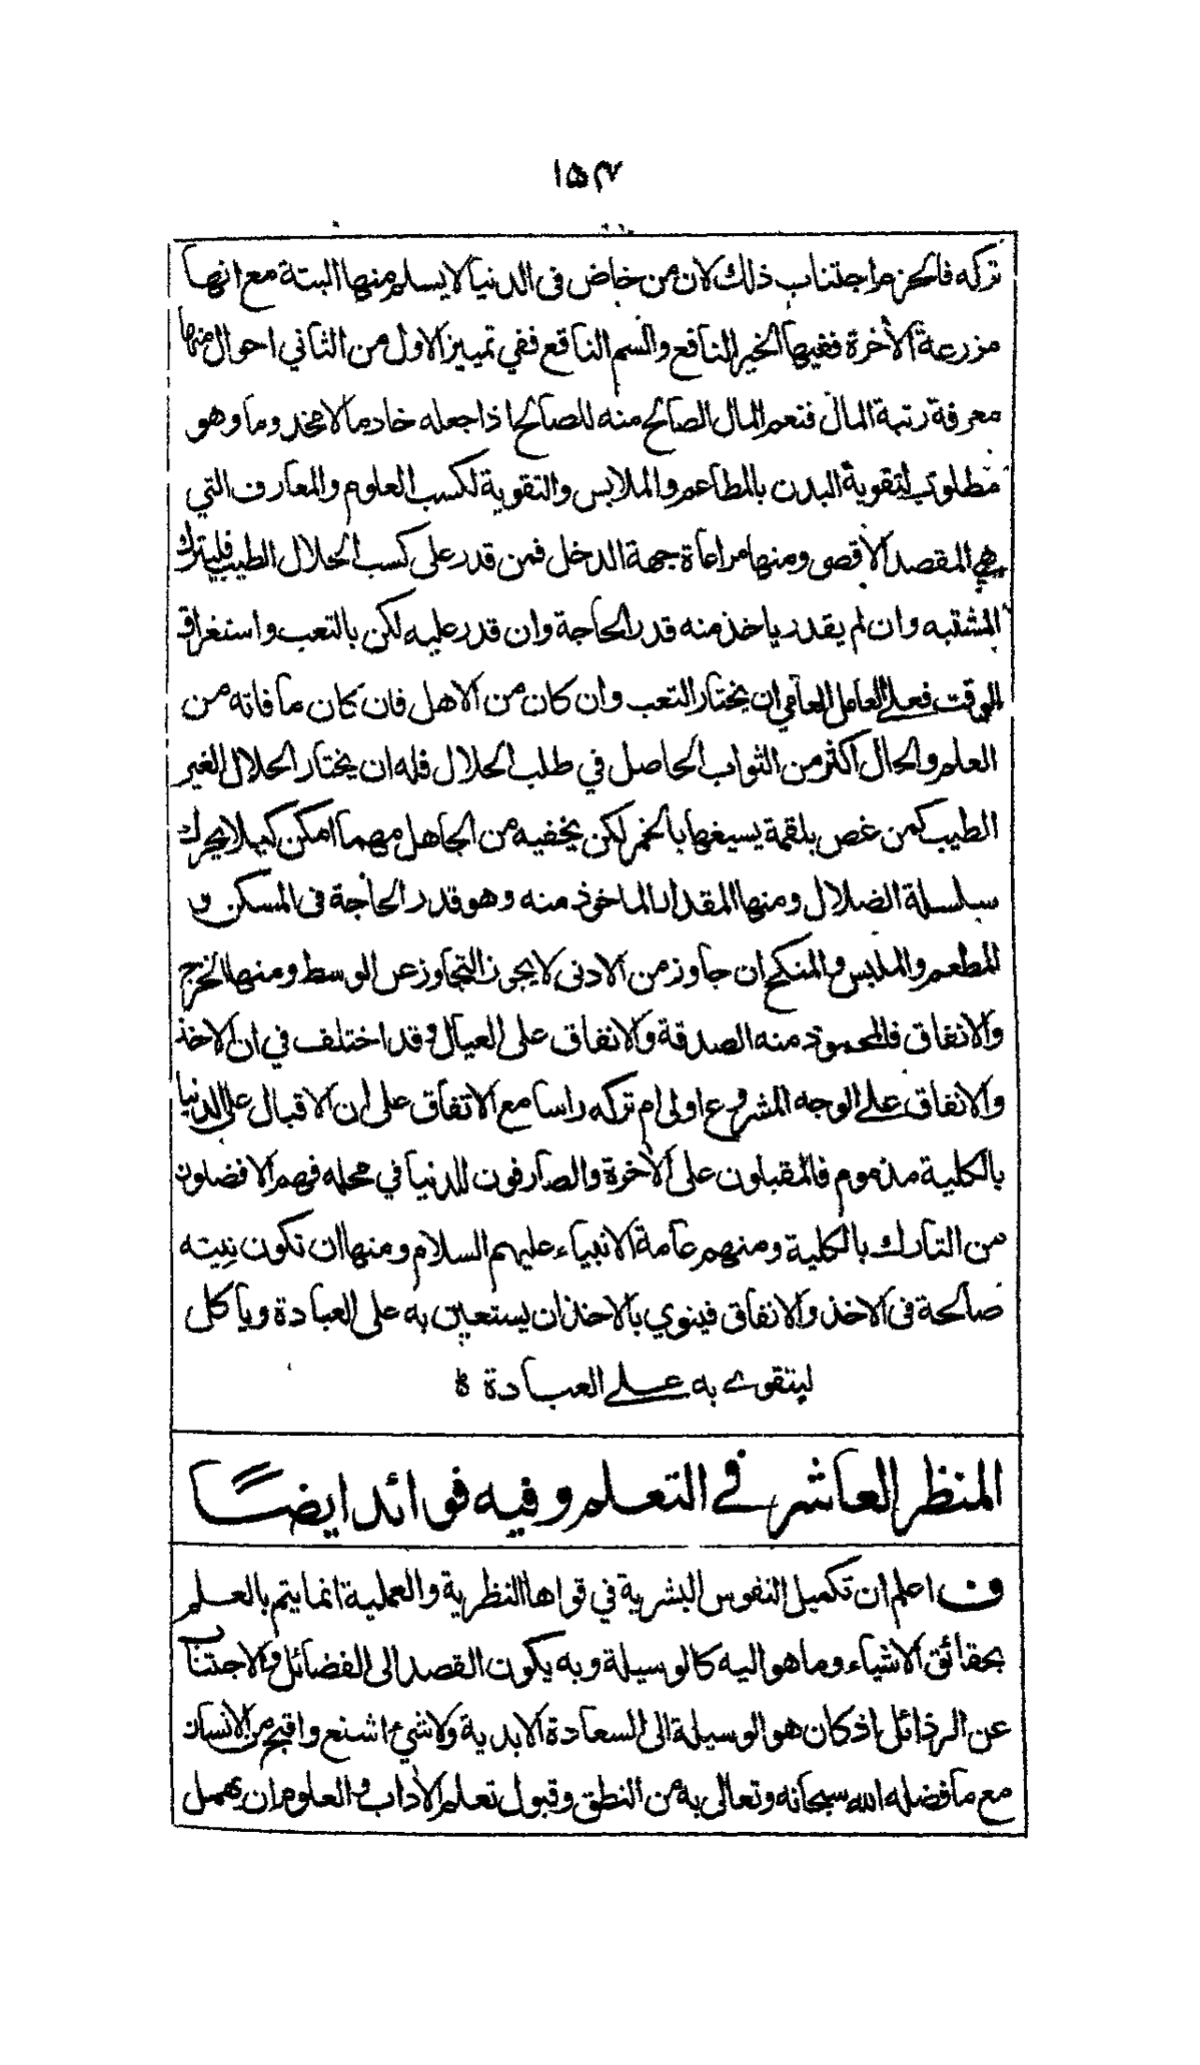 ١٥٣
تركه فالحزم اجتناب ذلك لان من خاض فى الدنيا لا يسلم منها البتة مع انها
مزرعة الأخرة ففيها الخير النافع والسم الناقع ففي تمييز الاول من الثاني احوال منها
معرفة رتبة المال فنعم المال الصالح منه للصالح اذا جعله خادما لا مخدوما وهو
مطلوب لتقوية البدن بالمطاعم والملابس والتقوية لكسب العلوم والمعارف التي
هي المقصد الأقصى ومنها مراعاة جهة الدخل فمن قدر على كسب الحلال الطيب فليترك
المشتبه وان لم يقدر ياخذ منه قدر الحاجة وان قدر عليه لكن بالتعب واستغراق
الوقت فعلى العامل العامي ان يختار التعب وان كان من الاهل فان كان ما فاته من
العلم والحال اكثر من الثواب الحاصل في طلب الحلال فله ان يختار الحلال الغير
الطيب كمن غص بلقمة يسيغها بالخمر لكن يخفيه من الجاهل مهما امكن كيلا يحرك
سلسلة الضلال ومنها المقدار الماخوذ منه وهو قدر الحاجة فى المسكن و
المطعم والملبس والمنكح ان جاوز من الادنى لا يجوز التجاوز عن الوسط ومنها الخرج
والانفاق فالمحمود منه الصدقة والانفاق على العيال وقد اختلف في ان الاخذ
والانفاق على الوجه المشروع اولى ام تركه راسا مع الاتفاق على ان الاقبال على الدنيا
بالكلية مذموم فالمقبلون على الأخرة والصارفون للدنيا في محله فهم الافضلون
من التارك بالكلية ومنهم عامة الانبياء عليهم السلام ومنها ان تكون نيته
صالحة فى الاخذ والانفاق فينوي بالاخذ ان يستعين به على العبادة وياكل
ليتقوى به على العبادة ه
المنظر العاشر في التعلم وفيه فوائد ايضًا
ف اعلم ان تكميل النفوس البشرية في قواها النظرية والعملية انما يتم بالعلم
بحقائق الاشياء وما هو اليه كالوسيلة وبه يكون القصد الى الفضائل والاجتناب
عن الرذائل اذ كان هو الوسيلة الى السعادة الابدية ولا شيء اشنع واقبح من الانسان
مع ما فضله الله سبحانه وتعالى به من النطق وقبول تعلم الأداب والعلوم ان يهمل